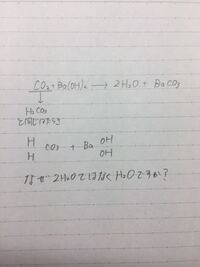 CO₂ + Ba(OH)₂ → 2H₂O + BaCO₃
↓
H₂CO₃
と同じはたらき
H OH
CO₃ + Ba
H OH
なぜ2H₂OではなくH₂Oですか?